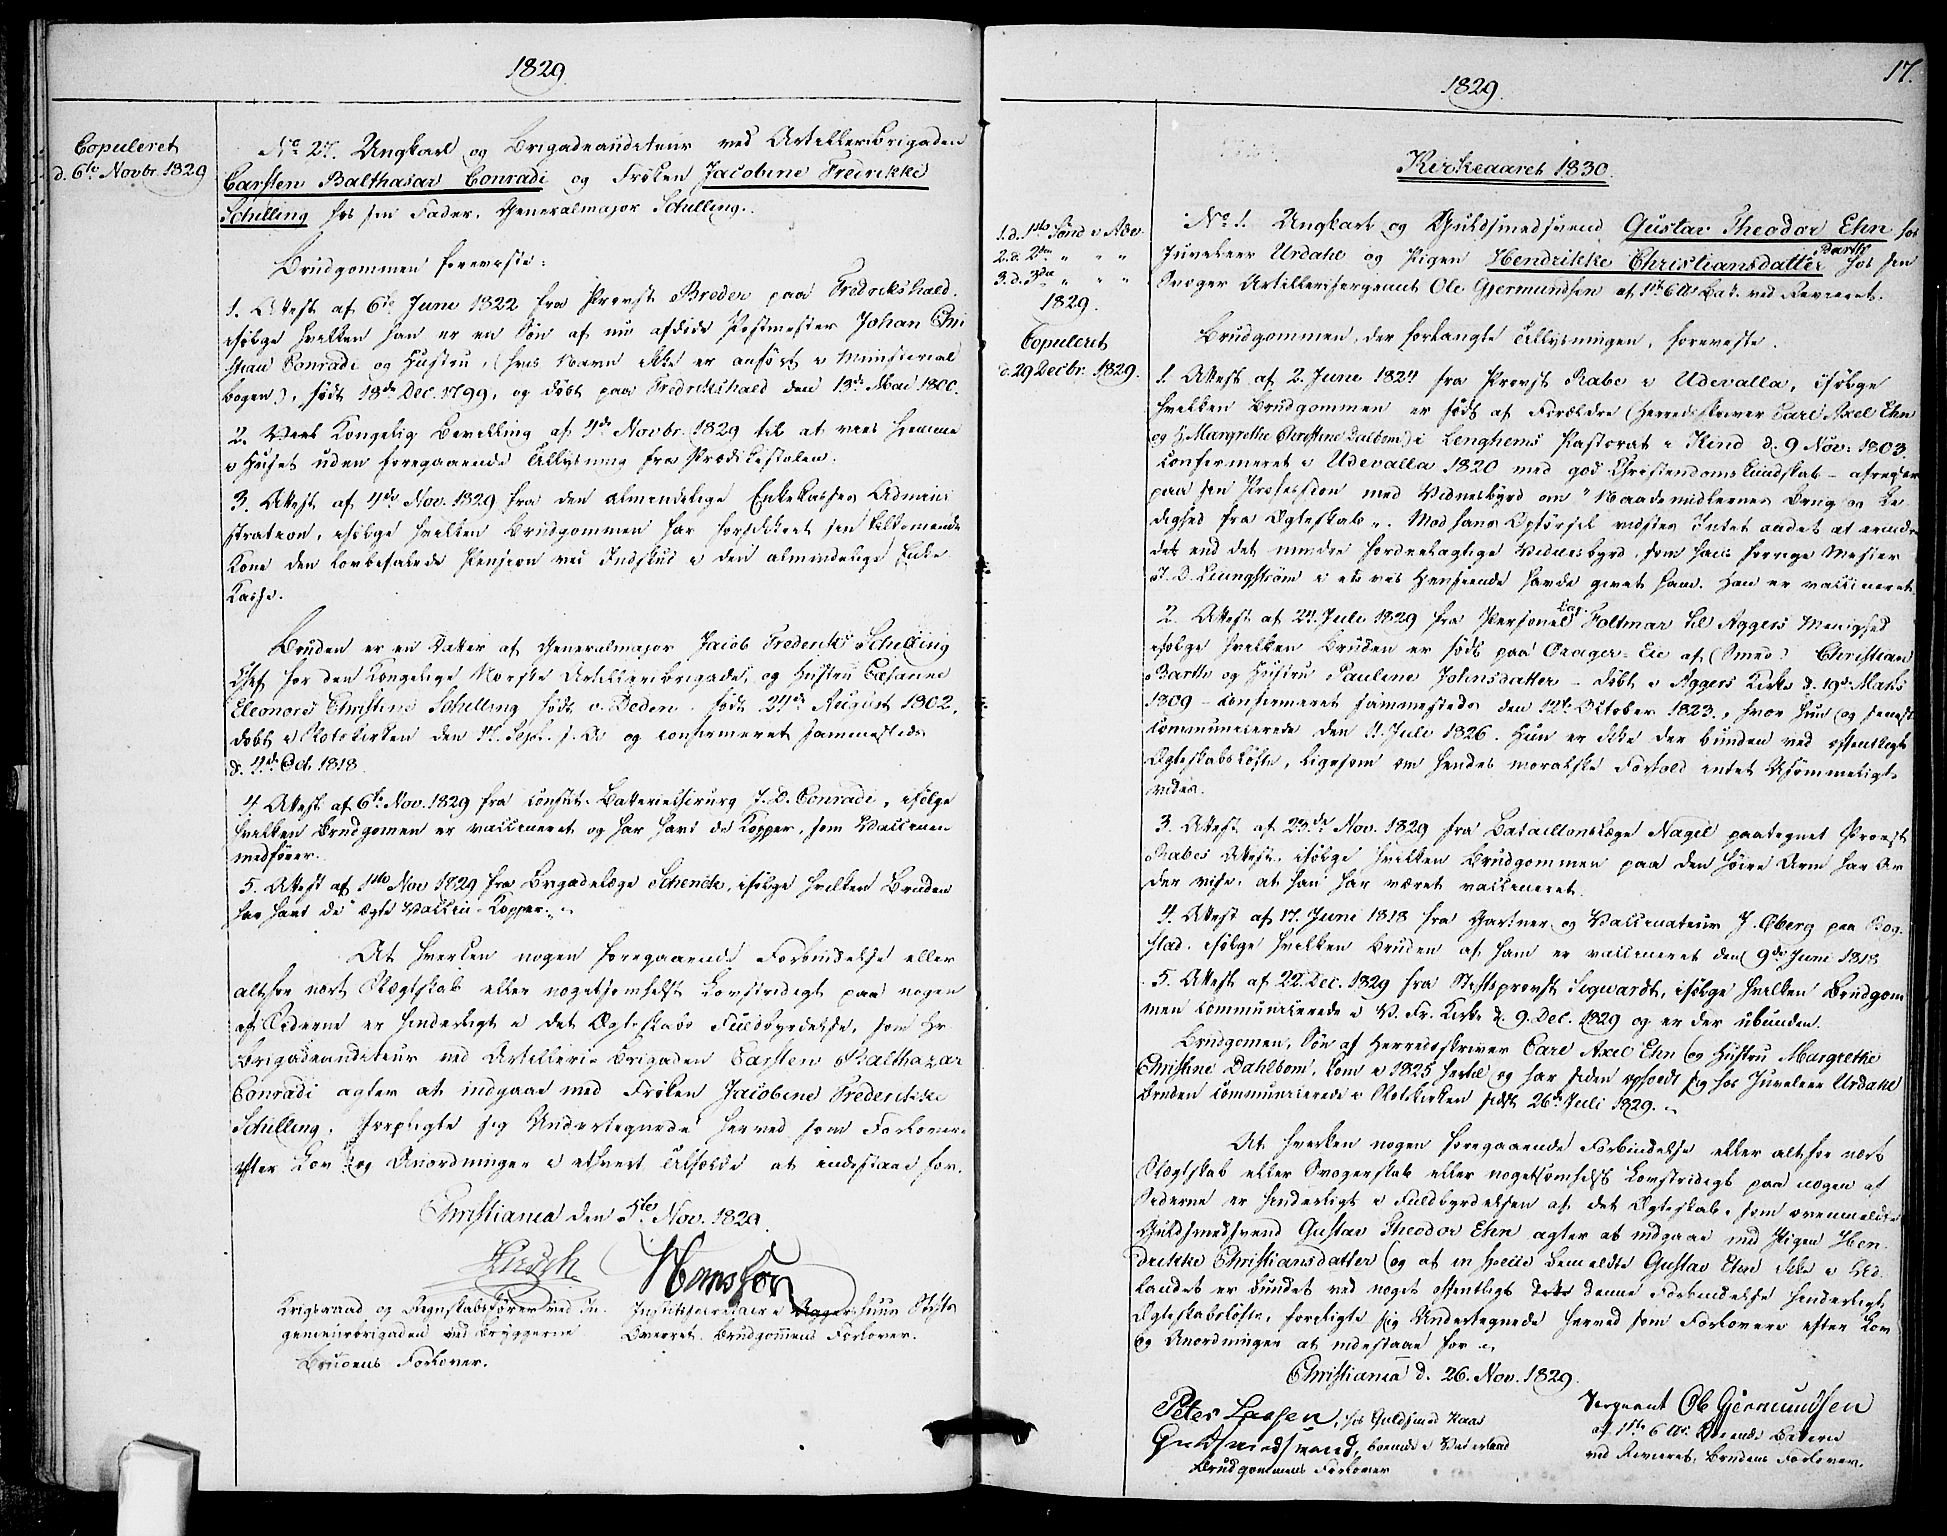 1829.
Copuleret
d. 6te Novbr. 1829
No 27. Ungkarl og Brigadeauditeur ved Artilleribrigaden
Carsten Balthasar Conradi og Frøken Jacobine Fredrikke
Schilling hos sin Fader, Generalmajor Schilling.
Brudgommen foreviste:
1. Attest af 6te Juni 1822 fra Provst Breder paa Fredrikshald.
ifølge hvilken han er en Søn af nu afdøde Postmester Johan Chri
stian Conradi og Hustru, (hvis Navn ikke er anført i Ministerial
bogen), født 18de Dec. 1799, og døbt paa Fredrikshald den 13de Mai 1800.
2. Vort Kongelig Bevilling af 4de Novbr. 1829 til at vies hjemme
i Huset uden foregaaende Tillysning fra Prædikestolen.
3. Attest af 4de Nov. 1829 fra den almindelige Enkekasses Admini
stration, ifølge hvilken Brudgommen har forsikkret sin tilkommende
Kone den lovbefalede Pension ved Indskud i den almindelige Enke
Kasse.
Bruden er en Datter af Generalmajor Jacob Frederik Schilling
Chef for den Kongelige Norske Artilleribrigade, og Hustru
Eleonore Christine Schilling født v. Deden. født 24de August 1802,
døbt i Slotskirken den 17. Sept. s. A. og confirmeret sammesteds
d. 4de Oct. 1818.
4 Attest af 6te Nov. 1829 fra const. Batteriechirurg J. D. Conradi, ifølge
hvilken Brudgomen er vaccineret og har havt de Kopper, som Vaccinen
medfører.
5. Attest af 1ste Nov 1829 fra Brigadelæge Schenck, ifølge hvilken Bruden
har havt de ægte Vaccin-Kopper.
At hverken nogen foregaaende Forbindelse eller
altfor nært Slægtskab eller nogetsomhelst Lovstridigt paa nogen
af Siderne er hinderligt i det Ægteskabs Fuldbyrdelse, som Hr
Brigadeauditeur ved Artilleri-Brigaden Carsten Balthazar
Conradi agter at indgaae med Frøken Jacobine Frederikke
Schilling, forpligte sig Undertegnede herved som Forlovere
efter Lov og Anordninger i ethvert Tilfælde at indestaae for.
Christiania den 5te Nov. 1829.
Krigsraad og Regnskabsfører ved In-
genieurbrigaden ved Bryggerne
Brudens Forlover.
Justitssecretair i Aggershuus Stifts
Overret. Brudgommens Forlover.
17.
1829.
Kirkeaaret 1830.
1. d. 1ste Sønd i Adv.
2. d. 2den " " "
3. d. 3die " " "
1829.
Copuleret
d. 29 Decbr. 1829.
No 1. Ungkarl og Guldsmedsvend Gustav Theodor Ehn hos
Juveleer Urdahl og Pigen Hendrikke Christiansdatter Barth hos sin
Svoger Artillerisergeant Ole Gjermundsen af 1ste 6 ℔ Bat. ved Revieret.
Brudgommen, der forlangte Tillysningen, foreviste.
1. Attest af 2. Juni 1824 fra Provst Rabe i Udevalla, ifølge
hvilken Brudgommen er født af Forældre (Herredsskriver Carl Axel Ehn
og H. Margrethe Christine Dalbom) i Lenghems Pastorat i Kind d. 9 Nov. 1803.
confirmeret i Udevalla 1820 med god Christendomskundskab – afreiser
paa sin Profession med Vidnesbyrd om "Naademidlernes Brug og Le
dighed fra Ægteskab". Mod hans Opførsel vidstes Intet andet at erindre
det end det mindre fordeelagtige Vidnesbyrd, som hans forrige Mester
J. D. Liungstrøm i etvis Henseende havde givet ham. Han er vaccineret
2. Attest af 24. Juli 1829 fra Personel Cap. Foltmar til Aggers Menighed
ifølge hvilken Bruden er født paa Orager-Eie af (Smed) Christian
Barth og Hustru Pauline Johnsdatter – døbt i Aggers Kirke d. 19de Marts
1809 – confirmeret sammesteds den 12te Oktober 1823, hvor hun og senest
communicerede den 4. Juli 1826. Hun er ikke der bunden ved offentligt
Ægteskabsløfte, ligesom om hendes moralske Forhold intet Usømmeligt
vides.
3. Attest af 23de Nov. 1829 fra Bataillonslæge Nagel paategnet Provst
Rabes Attest, ifølge hvilken Brudgommen paa den høire Arm har Ar
der vise, at han har været vaccineret.
4. Attest af 17. Juni 1818 fra Gartner og Vaccinateur J. Øberg paa Bog-
stad. ifølge hvilken Bruden af ham er vaccineret den 9de Juni 1818
5. Attest af 22. Dec. 1829 fra Stiftsprovst Sigwardt, ifølge hvilken Brudgom
men communicerede i V. Fr. Kirke d. 9. Dec. 1829 og er der ubunden.
Brudgomen, Søn af Herredsskriver Carl Axel Ehn og Hustru Margrethe
Christine Dahlbom, kom i 1825 hertil og har siden opholdt sig hos Juveleer Urdahl
Bruden communicerede i Slotskirken sidst 26de Juli 1829.
At hverken nogen foregaaende Forbindelse eller altfor nært
Slægtskab eller Svogerskab eller nogetsomhelst Lovstridigt paa nogen af
Siderne er hinderligt i Fuldbyrdelsen af det Ægteskab, som ovenmeldte
Guldsmedsvend Gustav Theodor Ehn agter at indgaae med Pigen Hen
drikke Christiansdatter og at in specie bemeldte Gustav Ehn ikke i Ud
landet er bundet ved noget offentligt denne Forbindelse hinderligt
Ægteskabsløfte, forpligte sig Undertegnede herved som Forlovere efter Lov
og Anordninger at indestaae for.
Christiania d. 26. Nov. 1829.
Peter Larsen, hos Guldsmed Haas
Guldsmedsvend, boende i Vaterland
Brudgommens Forlover
Sergeant Ole Gjermundsen
af 1ste 6 ℔ Batterie
ved Revieret, Brudens Forlover.